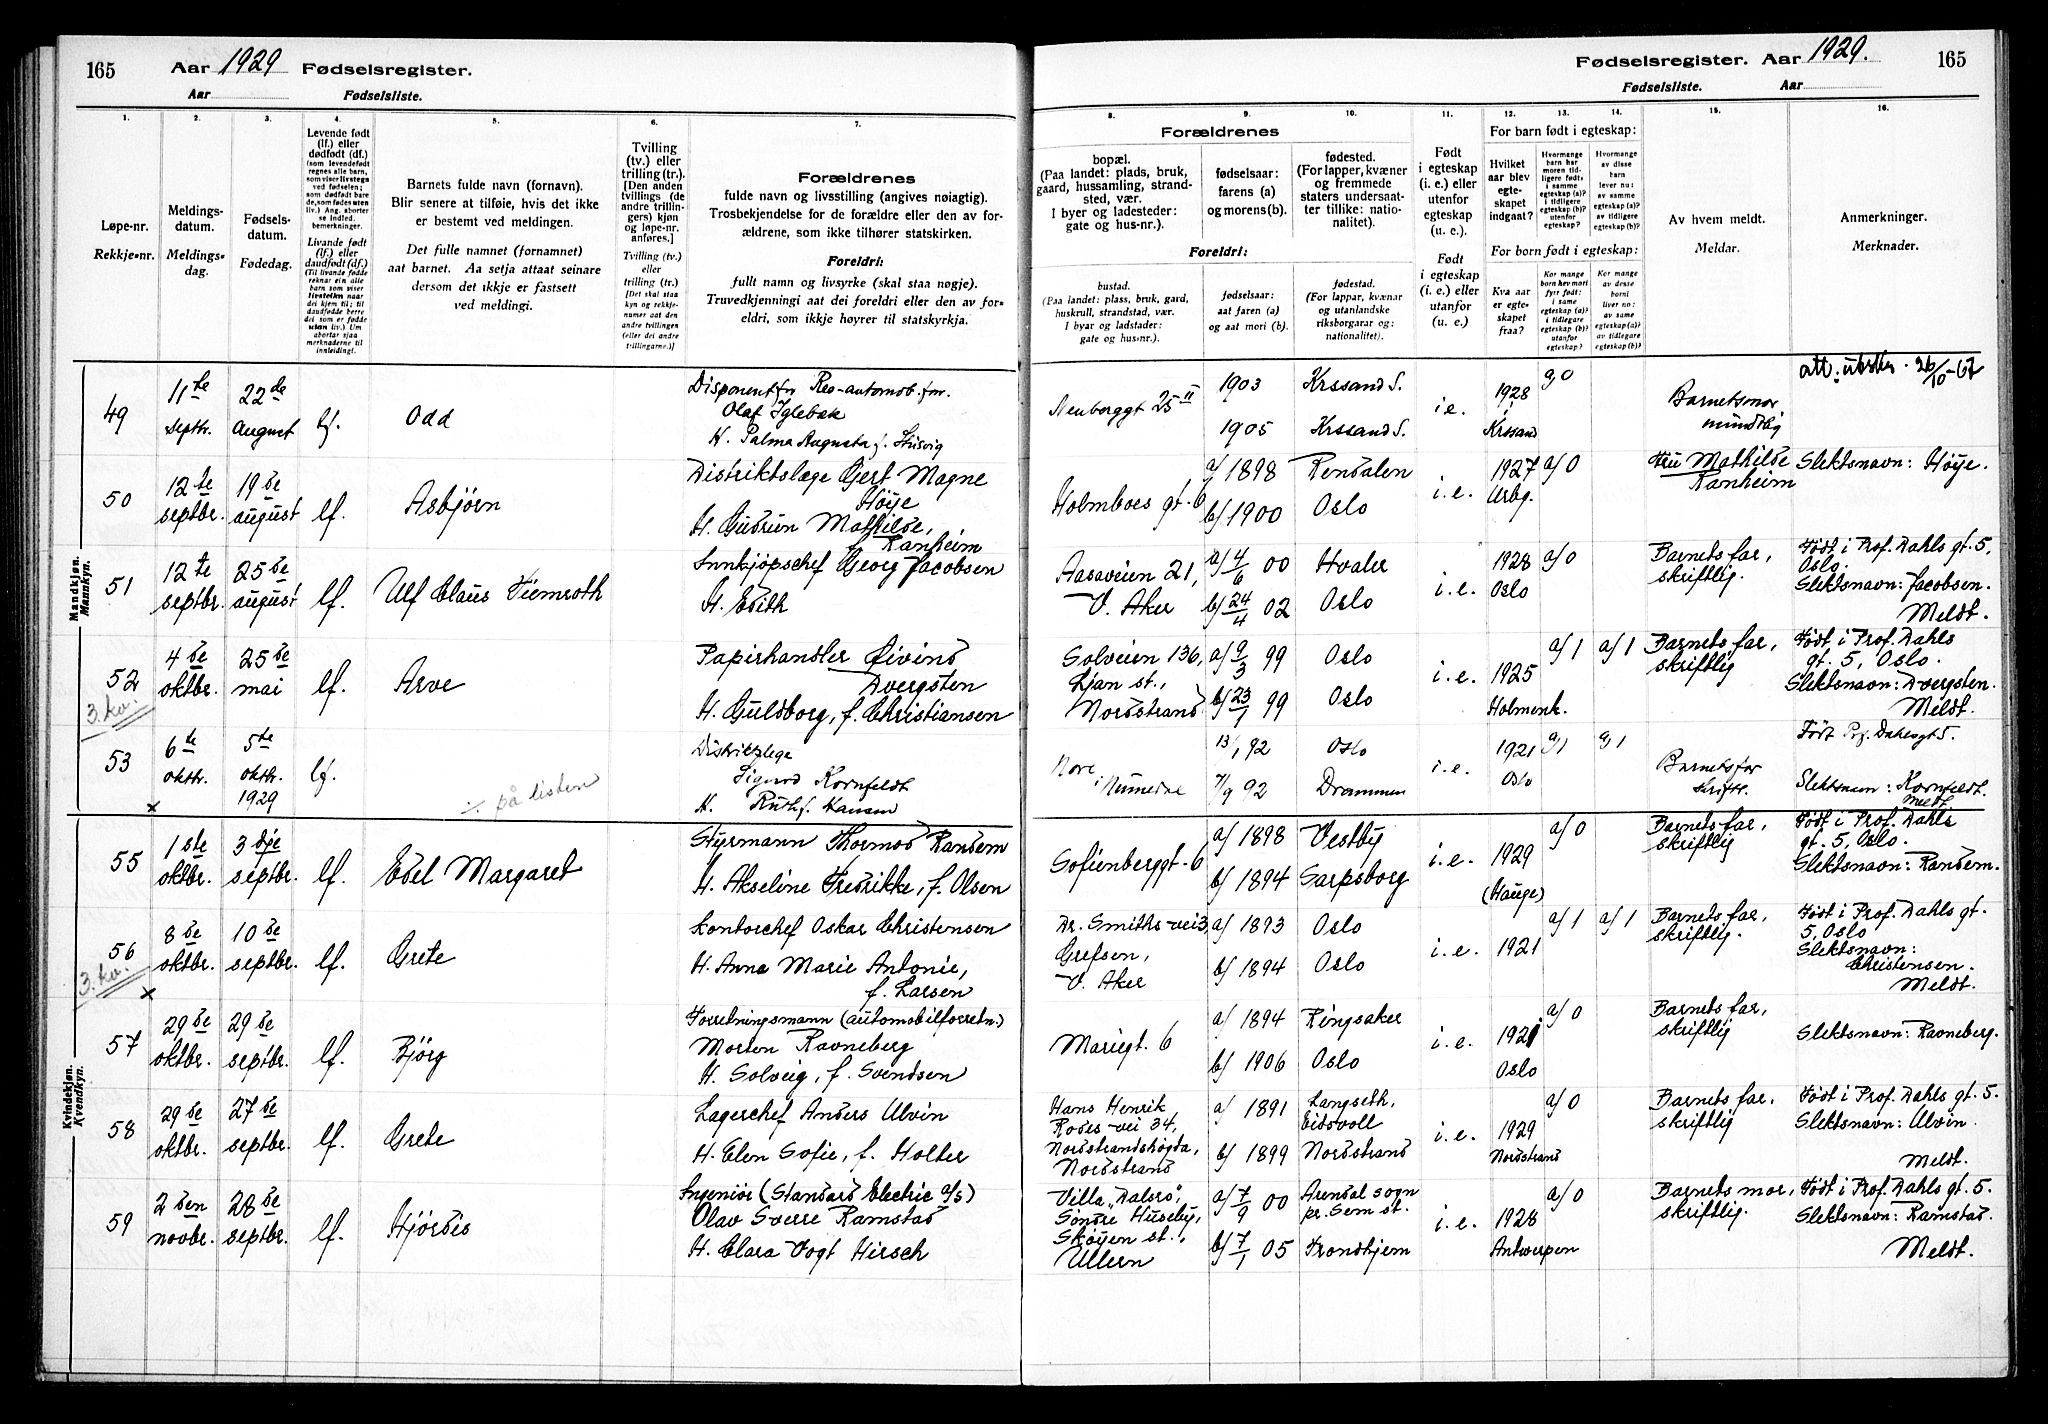 165
Aar 1929 Fødselsregister.
Aar
Fødselsliste.
1.
2.
3.
4.
5.
6.
7.
Løpe-nr.
Rekkje-nr.
Meldings-
datum.
Meldings-
dag.
Fødsels-
datum.
Fødedag.
Levende født
(lf.) eller
dødfødt (df.)
Livande født
(lf.) eller
daudfødt (df.)
Barnets fulde navn (fornavn).
Blir senere at tilføie, hvis det ikke
er bestemt ved meldingen.
Det fulle namnet (fornamnet)
aat barnet. Aa setja attaat seinare
dersom det ikkje er fastsett
ved meldingi.
Tvilling
(tv.) eller
trilling (tr.).
[Den anden
tvillings (de
andre trillin-
gers) kjøn
og løpe-nr.
anføres.]
Tvilling (tv.)
eller
trilling (tr.)
[Det skal staa
kyn og rekkje-
numer aat den
andre tvillingen
(eller dei andre
trillingarne.)]
Forældrenes
fulde navn og livsstilling (angives nøiagtig).
Trosbekjendelse for de forældre eller den av for-
ældrene, som ikke tilhører statskirken.
Foreldri:
fullt namn og livsyrke (skal staa nøgje).
Truvedkjenningi aat dei foreldri eller den av for-
eldri, som ikkje høyrer til statskyrkja.
Mandkjøn.
Mannkyn.
49
11te
septbr.
22de
August
lf.
Odd
Disponent for Reo-automob.forr.
Olaf Iglebæk
H. Palma Augusta f.
50
12te
septbr.
19de
august
lf.
Asbjørn
Distriktslæge Gert Magne
Høye
H. Gudrun Mathilde,
f. Ranheim
51
12te
septbr.
25de
august
lf.
Ulf Claus Tiemroth
Innkjøpschef Georg Jacobsen
H. Edith
52
3. kv.
4de
oktbr.
25de
mai
lf.
Arve
Papirhandler Øivind
Dvergsten
H. Guldborg, f. Christiansen
53
6te
oktbr.
x
5te
oktbr.
1929
lf.
på listen
Distriktslæge
Sigurd Kornfeldt
H. Ruth f. Hansen
Kvindekjøn.
Kvendkyn.
55
1ste
oktbr.
3dje
septbr.
lf.
Edel Margaret
Styrmann Thormod Randem
H. Akseline Fredrikke, f. Olsen
56
3. kv.
8de
oktbr.
x
10de
septbr.
lf.
Grete
Kontorchef Oskar Christensen
H. Anna Marie Antonie,
f. Larsen
57
29de
oktbr.
29de
septbr.
lf.
Bjørg
Forretningsmann (automobilforretn.)
Morten Ravneberg
H. Solveig, f. Svendsen
58
29de
oktbr.
27de
septbr.
lf.
Grete
Lagerchef Anders Ulvin
H. Elen Sofie, f. Holter
59
2den
novbr.
28de
septbr.
lf.
Hjørdis
Ingeniør (Standard Electric a/s)
Olav Sverre Ramstad
H. Clara Vogt Hirsch
Fødselsregister. Aar 1929.
165
Fødselsliste.
Aar
8.
9.
10.
11.
12.
13.
14.
15.
16.
Forældrenes
bopæl.
(Paa landet: plads, bruk,
gaard, hussamling, strand-
sted, vær.
I byer og ladesteder:
gate og hus-nr.).
fødselsaar:
farens (a)
og morens (b).
fødested.
(For lapper, kvæner
og fremmede
staters undersaat-
ter tillike: natio-
nalitet).
Foreldri:
bustad.
(Paa landet: plass, bruk, gard,
huskrull, strandstad, vær.
I byar og ladstader:
gate og hus-nr.).
fødselsaar:
aat faren (a)
og aat mori (b).
fødestad.
(For lappar, kvænar
og utanlandske
riksborgarar og:
nationalitet).
Født
i egteskap
(i. e.) eller
utenfor
egteskap
(u. e.).
Født
i egteskap
(i. e.) eller
utanfor
(u. e.).
For barn født i egteskap:
Hvilket
aar blev
egte-
skapet
indgaat?
For born født i egteskap:
Kva aar
er egte-
skapet
fraa?
Av hvem meldt.
Meldar.
Anmerkninger.
Merknader.
Neuberggt 25 II
1903
1905
Krssand S.
Krssand S.
i e.
1928
Krssand
a/0
Barnets mor
mundtlig
att. utsted. 26/10-67
Holmboes gt. 6
a/ 1898
b/ 1900
Rendalen
Oslo
i. e.
1927
a/0
Fru Mathilde
Ranheim
Slektsnavn: Høye.
Aasaveien 21,
V. Aker
a/ 4/6 00
b/ 24/4 02
Hvaler
Oslo
i. e.
1928
Oslo
a/0
Barnets far,
skriftlig.
Født i Prof. Dahls gt. 5,
Oslo.
Slektsnavn: Jacobsen.
Meldt.
Solveien 136,
Ljan st.,
Nordstrand
a/ 9/3 99
b/ 23/1 99
Oslo
Oslo
i. e.
1925
Holmenk.
a/1
a/1
Barnets far,
skriftlig
Født i Prof. Dahls
gt. 5, Oslo.
Slektsnavn: Dvergsten.
Meldt.
Nore
i Numedal
13/1 92
7/9 92
Oslo
Drammen
i. e.
1921
Oslo
a/1
a/1
Barnets far
skriftl.
Født Prf. Dahlsgt 5.
Slektsnavn: Kornfeldt.
Meldt.
Sofienberggt. 6
a/ 1898
b/ 1894
Vestby
Sarpsborg
i. e.
1929
(Hauge)
a/0
Barnets far,
skriftlig
Født i Prof. Dahls
gt. 5, Oslo.
Slektsnavn: Randem.
Dr. Smiths vei 3,
Grefsen,
V. Aker
a/ 1893
b/ 1894
Oslo
Oslo
i. e.
1921
a/1
a/1
Barnets far,
skriftlig.
Født i Prof. Dahls gt.
5, Oslo
Slektsnavn:
Christensen.
Meldt.
Mariegt. 6
a/ 1894
b/ 1906
Ringsaker
Oslo
i. e.
Oslo
a/0
Barnets far,
skriftlig
Slektsnavn: Ravneberg.
Hans Henrik
Rodes vei 34,
Nordstrandshøgda,
Nordstrand
a/ 1891
b/ 1899
Langseth,
Eidsvoll
Nordstrand
i. e.
1929
Nordstrand
a/0
Barnets far,
skriftlig
Født i Prof. Dahls gt. 5.
Slektsnavn: Ulvin.
Meldt.
Villa "Dalsro",
Søndre Huseby,
Skøyen st.,
Ullern
a/ 7/9 00
b/ 7/1 05
Arendal sogn
pr. Sem st.
Trondhjem
i. e.
1928
Antwerpen
a/0
Barnets mor,
skriftlig.
Født i Prof. Dahls gt. 5.
Slektsnavn: Ramstad.
Meldt.